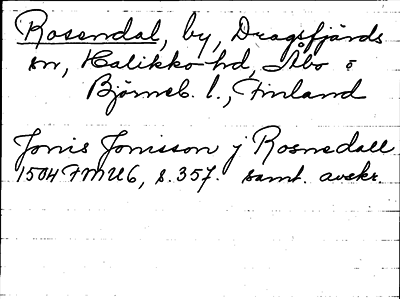 Rosendal, by, Dragsfjärds
sn, Halikko hd, Åbo &
Björneb. l., Finland
Jonis Jonisson j Rosnedall
1504 FMU6, s. 357. samt. avskr.